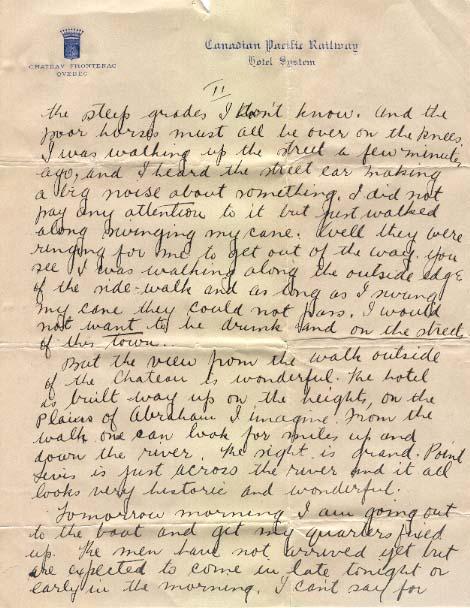 CHATEAU FRONTENAC
QUEBEC
Canadian Pacific Railway
Hotel System
II
the steep grades I don't know. And the
poor horses must all be over on the knees.
I was walking up the street a few minutes
ago, and I heard the street car making
a big noise about something. I did not
pay any attention to it but just walked
along swinging my cane. Well they were
ringing for me to get out of the way. you
see I was walking along the outside edge
of the side-walk and as long as I swung
my cane they could not pass. I would
not want to be drunk and on the streets
of this town...
But the view from the walk outside
of the Chateau is wonderful. The hotel
is built way up on the heights, on the
Plains of Abraham I imagine. From the
walk one can look for miles up and
down the river. The sight is grand. Point
Levis is just across the river and it all
looks very historic and wonderful.
Tomorrow morning I am going out
to the boat and get my quarters fixed
up. The men have not arrived yet but
are expected to come in late tonight or
early in the morning. I can't say for